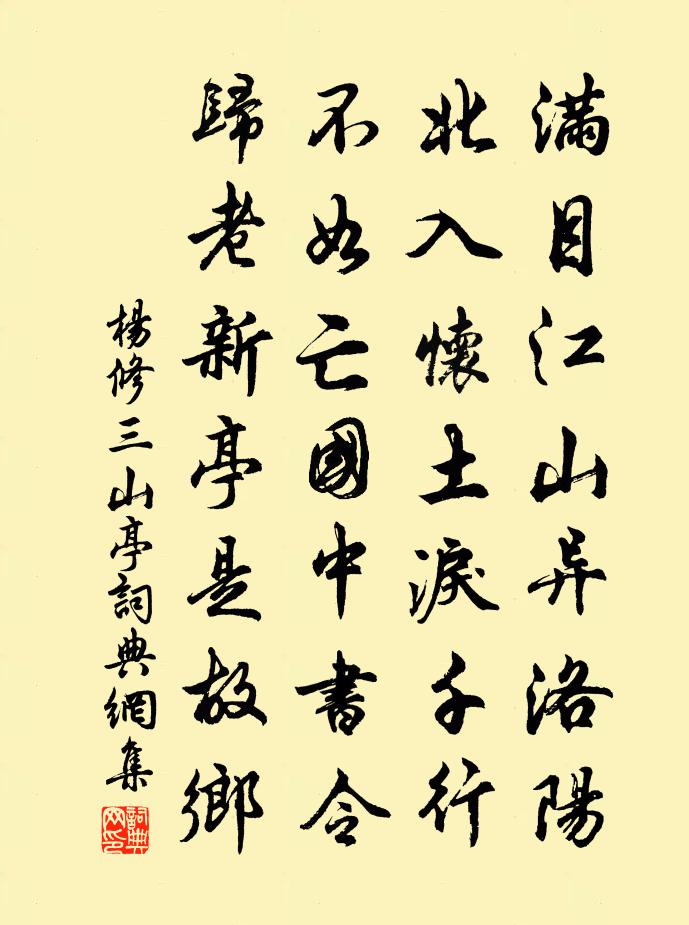 滿目江山异洛陽
北人懷土淚千行
不如亡國中書令
歸老新亭是故鄉
楊修三山亭詞典網集
詞典网印